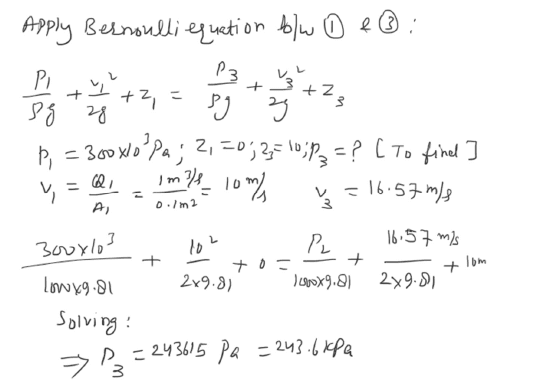 Apply Bernoulli equation b/w ① & ③ :
P₁/ρg + v₁²/2g + z₁ = P₃/ρg + v₃²/2g + z₃
P₁ = 300x10³ Pa ; z₁ = 0 ; z₃ = 10 ; P₃ = ? [To find]
v₁ = Q₁/A₁ = 1 m³/s/0.1m2 = 10 m/s v₃ = 16.57 m/s
300x10³/1000x9.81 + 10²/2x9.81 + 0 = P₂/1000x9.81 + 16.57 m/s/2x9.81 + 10m
Solving :
⇒ P₃ = 243615 Pa = 243.6 kPa